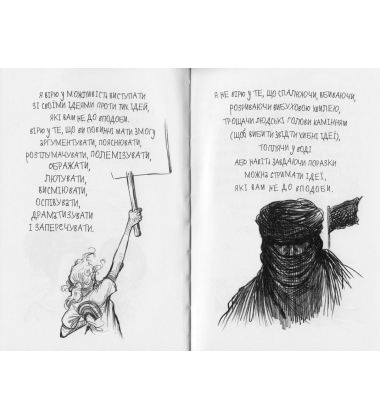 Я ВІРЮ У МОЖЛИВІСТЬ ВИСТУПАТИ
ЗІ СВОЇМИ ІДЕЯМИ ПРОТИ ТИХ ІДЕЙ,
ЯКІ ВАМ НЕ ДО ВПОДОБИ.
ВІРЮ У ТЕ, ЩО ВИ ПОВИННІ МАТИ ЗМОГУ
АРГУМЕНТУВАТИ, ПОЯСНЮВАТИ,
РОЗТЛУМАЧУВАТИ, ПОЛЕМІЗУВАТИ,
ОБРАЖАТИ,
ЛЮТУВАТИ,
ВИСМІЮВАТИ,
ОСПІВУВАТИ,
ДРАМАТИЗУВАТИ
І ЗАПЕРЕЧУВАТИ.
Я НЕ ВІРЮ У ТЕ, ЩО СПАЛЮЮЧИ, ВБИВАЮЧИ,
РОЗРИВАЮЧИ ВИБУХОВОЮ ХВИЛЕЮ,
ТРОЩАЧИ ЛЮДСЬКІ ГОЛОВИ КАМІННЯМ
(ЩОБ ВИБИТИ ЗВІДТИ ХИБНІ ІДЕЇ),
ТОПЛЯЧИ У ВОДІ
АБО НАВІТЬ ЗАВДАЮЧИ ПОРАЗКИ
МОЖНА СТРИМАТИ ІДЕЇ,
ЯКІ ВАМ НЕ ДО ВПОДОБИ.